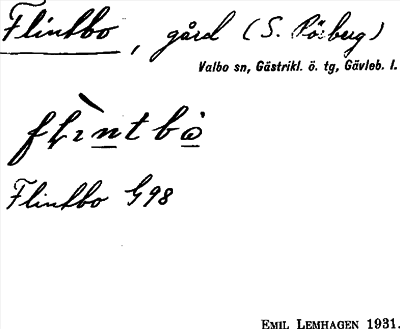 Flintbo, gård (S. Pörberg)
Valbo sn, Gästrikl. ö. tg, Gävleb. l.
Flintbo G98
EMIL LEMHAGEN 1931.